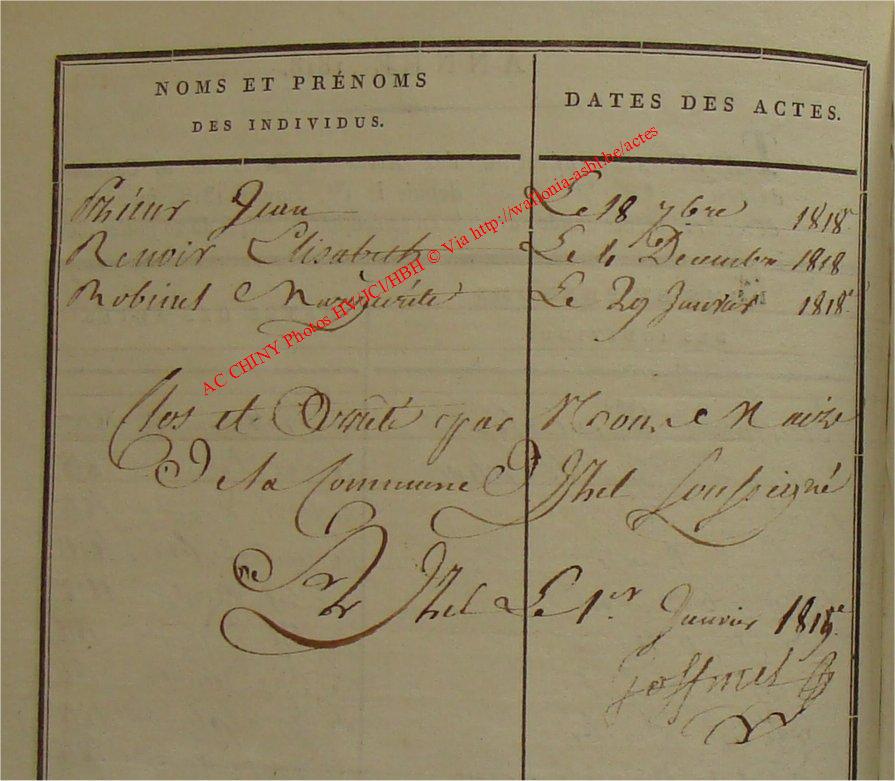 NOMS ET PRÉNOMS
DES INDIVIDUS.
DATES DES ACTES.
Jean Le 18 7bre 1818
Renoir Elisabeth Le 4 Decembre 1818
Robinet Marguerite Le 29 Janvier 1818
Clos et Arrêté par Nous Maire
De la Commune D'Izel Soussigné
Izel Le 1er Janvier 1819
AC CHINY Photos HV/JCl/HBH © Via http://wallonia-asbl.be/actes